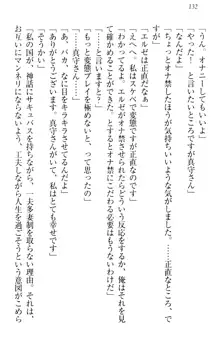 132
「うん。オナニーしてもいいよ」
「やった！　……と言いますか、真守さん」
「なんだよ」
「ちょっとオナ禁したほうが気持ちいいです。……正直なところ、で
すね」
「エルゼは正直だなぁ」
「えへへ、私はスケベで変態ですが正直なのです」
「わかってるよ。エルゼがオナ禁されたらどういう反応をするか、俺はそれを見
るためにしたんだから。別にオナ禁にこだわる必要はもうないんだ」
「もっと変態プレイをしようね」
「と、言いますと？」
「あ、バカ。なに目をキラキラさせているんだよ」
「ありがとうございます。真守さんがいて、私はとても幸せです」
「そうかい」
「私の国が、神話にサキュバスを持ちながら、一夫多妻制を取らない理由。それは、
お互いにマンネリにならないよう、工夫しながら人生を過ごすという意図がこめら